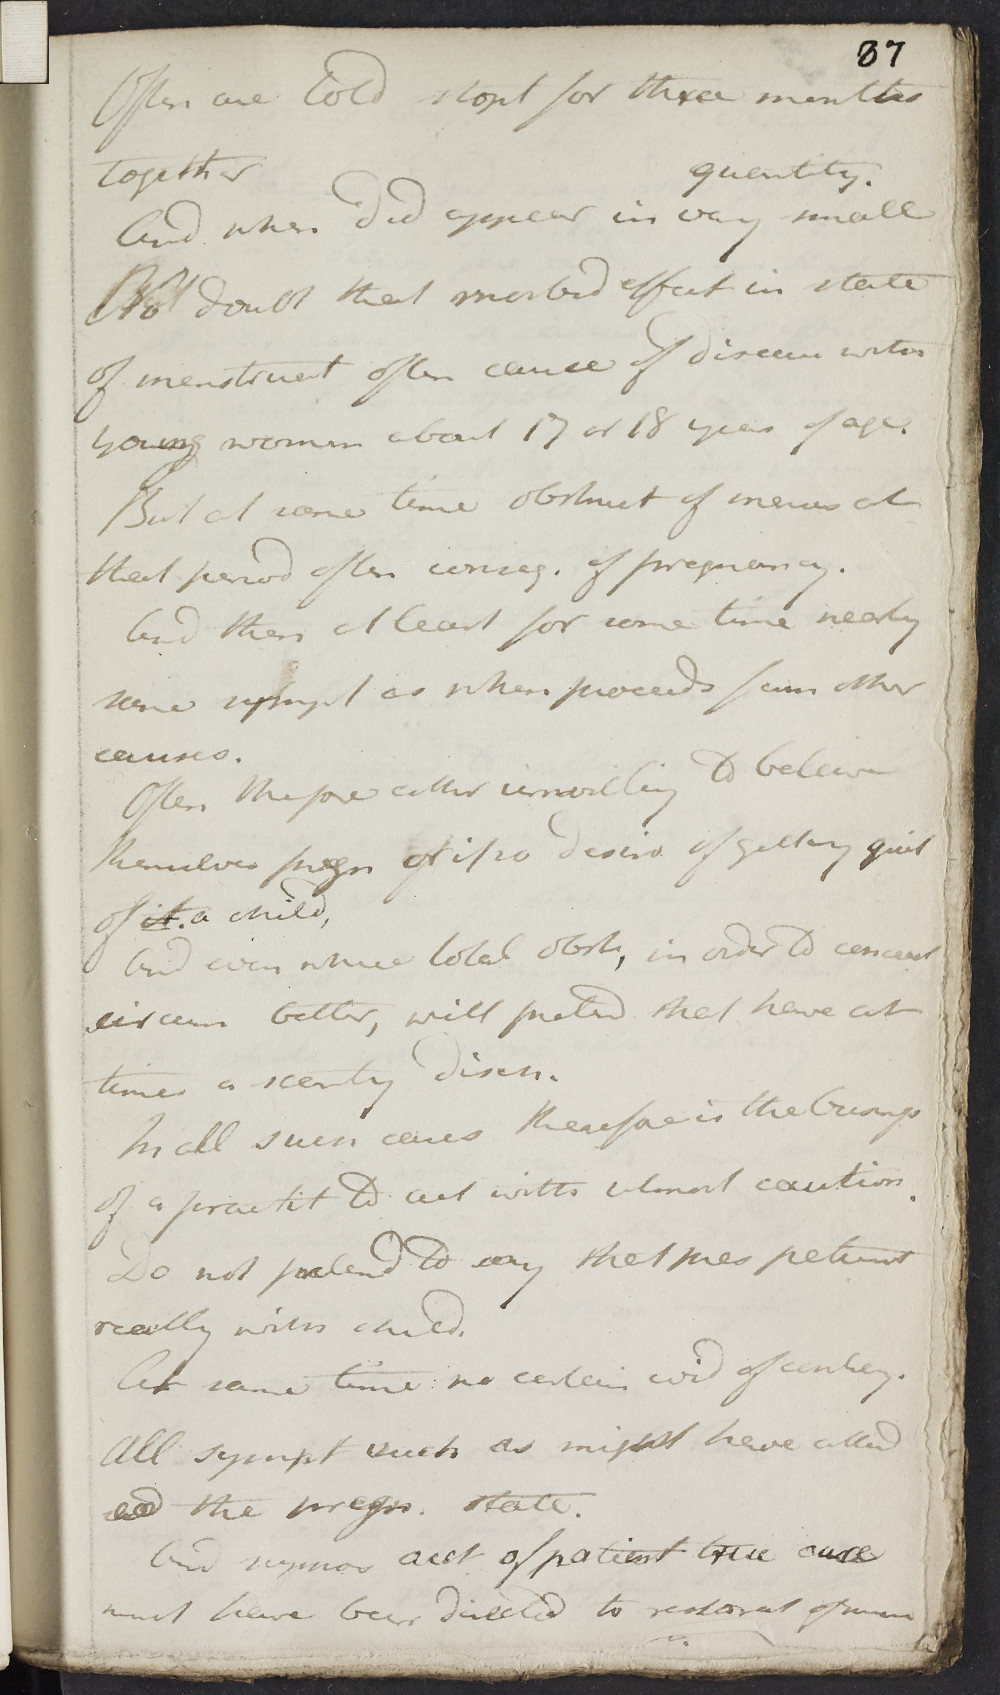 87
Often are told stopt for three months
together
quantity.
And when did appear in very small
Not doubt that morbid effect in state
of menstruat often cause of disease with
young women about 17 or 18 years of age.
But at same time obstruct of menses at
that period often conseq. of pregnancy.
And then at least for some time nearly
same sympt as when proceeds from other
causes.
Often therefore either unwilling to believe
themselves pregn or if so desire of getting quit
of it. a child,
And even where total obstr, in order to conceal
circum better, will pretend that have at
times a scanty disch.
In all such cases therefore is the business
of a practit to act with utmost caution.
Do not pretend to say that this patient
really with child.
At same time no certain evid of contrary.
All sympt such as might have attend
ed the pregn. state.
And suppos acct of patient true cure
must have been directed to restorat of men